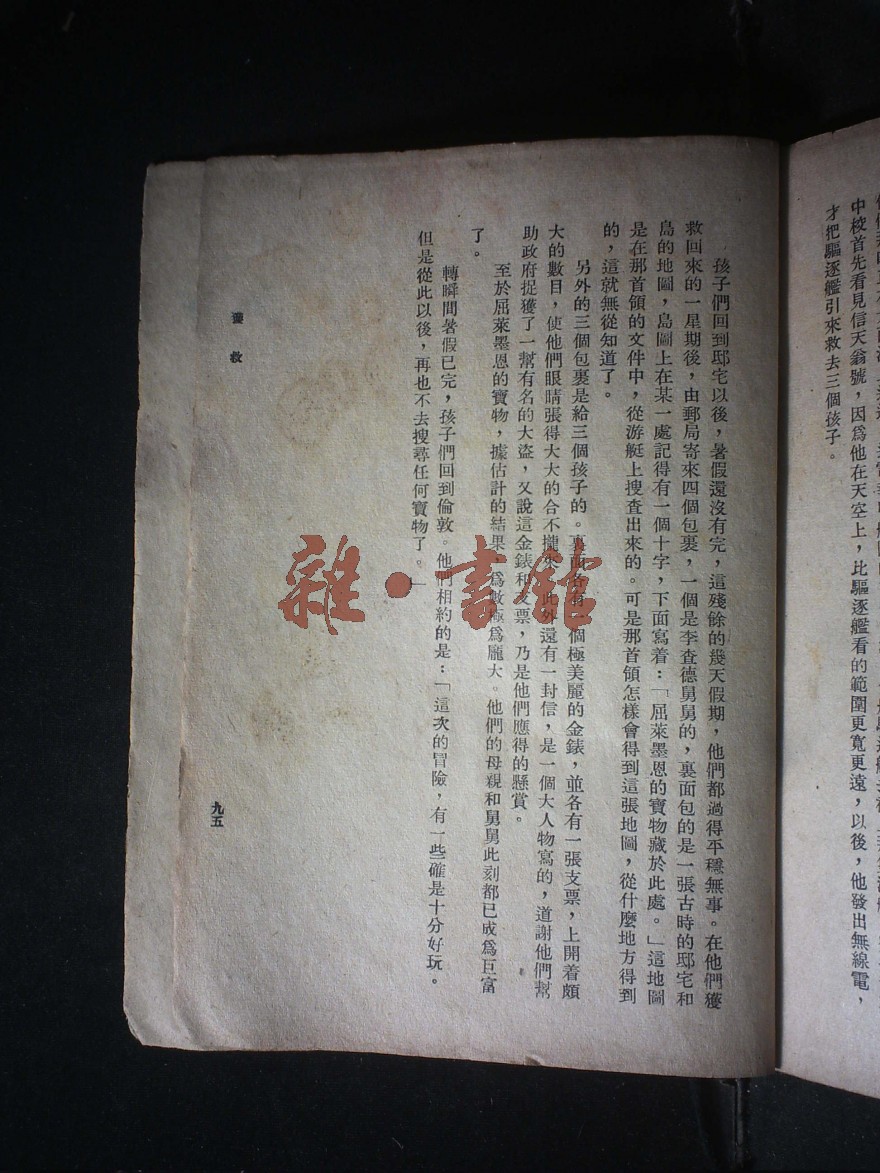 中校首先看見信天翁號，因爲他在天空上，比驅逐艦看的範圍更寬更遠，以後，他發出無線電，
才把驅逐艦引來救去三個孩子。
孩子們回到邸宅以後，暑假還沒有完，這殘餘的幾天假期，他們都過得平穩無事。在他們獲
救回來的一星期後，由郵局寄來四個包裹，一個是李查德舅舅的，裏面包的是一張古時的邸宅和
島的地圖，島圖上在某一處記得有一個十字，下面寫着：「屈萊墨恩的寶物藏於此處。」這地圖
是在那首領的文件中，從游艇上搜查出來的。可是那首領怎樣會得到這張地圖，從什麼地方得到
的，這就無從知道了。
另外的三個包裹是給三個孩子的。裏面各有一個極美麗的金錶，並各有一張支票，上開着頗
大的數目，使他們眼睛張得大大的合不攏來。此外還有一封信，是一個大人物寫的，道謝他們幫
助政府捉獲了一幫有名的大盜，又說這金錶和支票，乃是他們應得的懸賞。
至於屈萊墨恩的寶物，據估計的結果，爲數極爲龐大。他們的母親和舅舅此刻都已成爲巨富
了。
轉瞬間暑假已完，孩子們回到倫敦。他們相約的是：「這次的冒險，有一些確是十分好玩。
但是從此以後，再也不去搜尋任何寶物了。」
獲救
九五
雜·書館